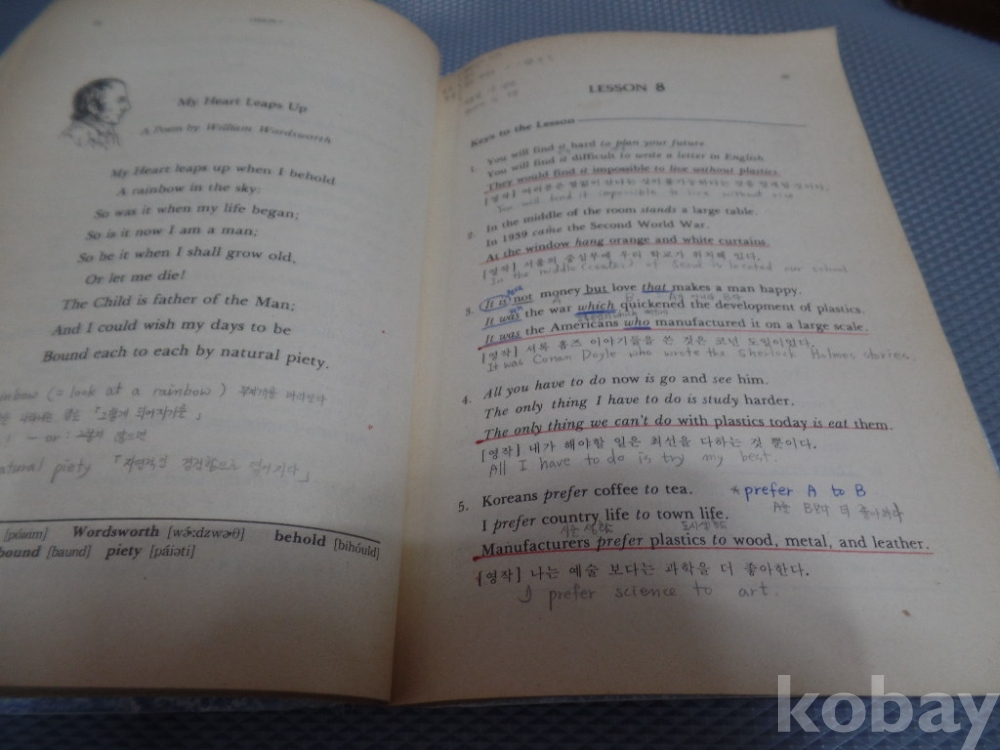 My Heart Leaps Up
A Poem by William Wordsworth
My Heart leaps up when I behold
A rainbow in the sky:
So was it when my life began;
So is it now I am a man;
So be it when I shall grow old,
Or let me die!
The Child is father of the Man;
And I could wish my days to be
Bound each to each by natural piety.
(= look at a rainbow)
natural piety
Wordsworth [wə́:dzwə:θ] behold [bihóuld]
bound [baund] piety [páiəti]
LESSON 8
Keys to the Lesson
1. You will find it hard to plan your future.
You will find it difficult to write a letter in English
They would find it impossible to live without plastics.
You will find it impossible to live without
2. In the middle of the room stands a large table.
In 1939 came the Second World War.
At the window hang orange and white curtains.
[영작] 서울의 중심부에 우리 학교가 위치해 있다.
In the middle (center) of Seoul is located our school
3. It is not money but love that makes a man happy.
It was the war which quickened the development of plastics.
It was the Americans who manufactured it on a large scale.
[영작] 셔록 홈즈 이야기들을 쓴 것은 코넌 도일이었다.
It was Conan Doyle who wrote the Sherlock Holmes stories.
4. All you have to do now is go and see him.
The only thing I have to do is study harder.
The only thing we can't do with plastics today is eat them.
[영작] 내가 해야할 일은 최선을 다하는 것 뿐이다.
All I have to do is try my best.
5. Koreans prefer coffee to tea. *prefer A to B
I prefer country life to town life. A를 B보다 더 좋아하다
Manufacturers prefer plastics to wood, metal, and leather.
[영작] 나는 예술 보다는 과학을 더 좋아한다.
I prefer science to art.
kobay